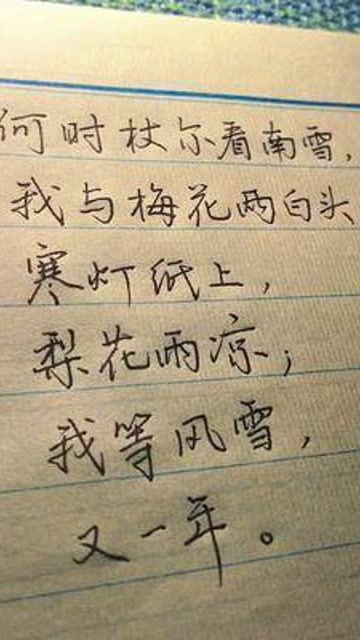 何时杖尔看南雪，
我与梅花两白头
寒灯纸上，
梨花雨凉，
我等风雪，
又一年。